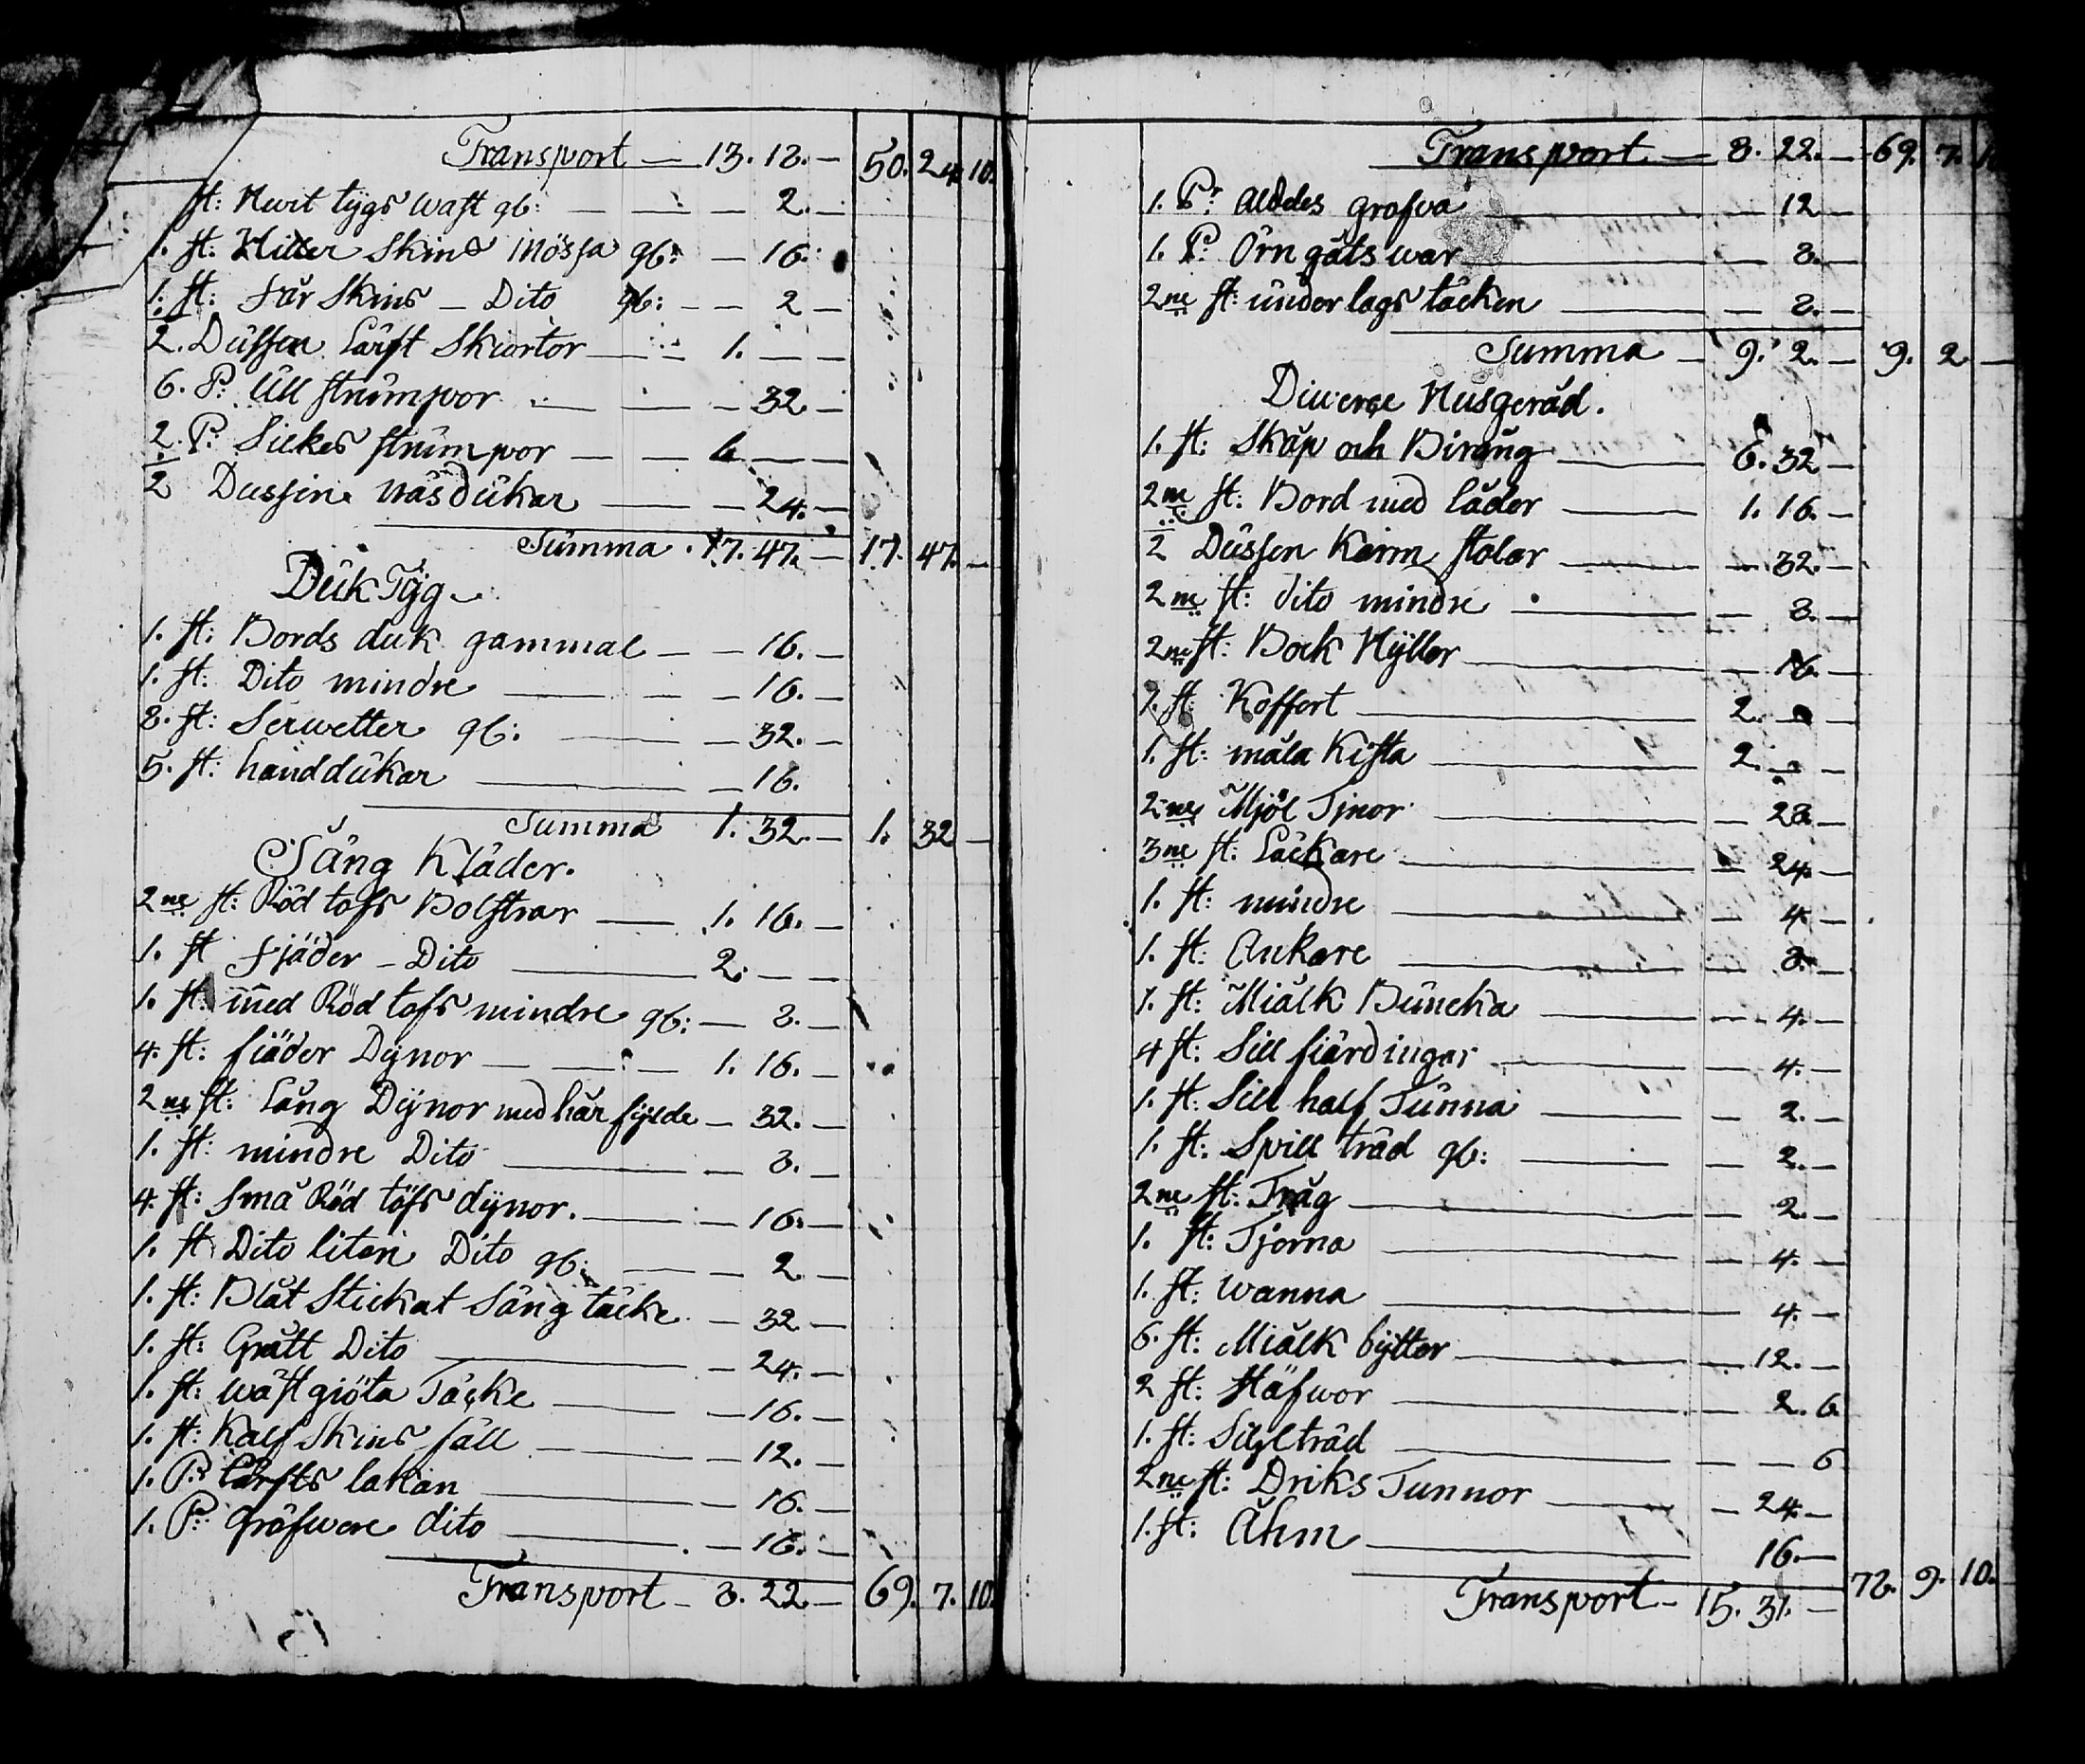 Transport — 13. 18. — 50. 24. 10.
st: Hwit tygs wäst gb: — — 2. —
1. st: Hiller Skins Mössa gb: — 16.
1. st: Får Skins — Dito gb: — — 2 —
1/2. Dussen Lärft Skiortor — — 1. — —
6. Pr Ull strumpor — — — 32 —
2. Pr Silkes strumpor — — 6 — —
1/2 Dussin Näsdukar — — 24. —
Summa . 17. 47. — 17. 47. —
Duk Tyg.
1. st: Bords duk gammal — — 16. —
1. st: Dito mindre — — 16. —
8. st: Serwetter gb: — — 32. —
5. st: handdukar — — 16.
Summa 1. 32. — 1. 32 —
Säng Kläder.
2ne st: Röd tofs Bolstrar — 1. 16. —
1. st fjäder — Dito — 2. — —
1. st: med Röd tofs mindre gb: — 8. —
4. st: fiäder Dynor — — 1. 16. —
2ne st: Lång Dynor med hår fylde — 32. —
1. st: mindre Dito — — 8. —
4. st: Små Röd tofs dynor. — — 16. —
1. st Dito liten Dito gb. — — 2 —
1. st: Blåt Stickat Säng täcke — 32 —
1. st: Grått Dito — — 24. —
1. st: wästgiöta Täcke — — 16. —
1. st: Kalf Skins fäll — — 12. —
1. Pr Lärfts lakan — — 16. —
1. Pr gröfwere dito — — 16. —
Transport — 8. 22. — 69. 7. 10.
Transport — 8. 22. — 69. 7. 1
1. Pr aldeles grofwa — — 12 —
1. Pr Örngåtswar — — 8. —
2ne st: underlags täcken — — 8. —
Summa — 9. 2. — 9. 2 —
Diverse Husgeråd.
1. st: Skåp och Birång — 6. 32 —
2ne st: Bord med låder — 1. 16. —
1/2 Dussen Karm stolar — — 32. —
2ne st: dito mindre — — 8. —
2ne st: Bock Hyller — — 16. —
1. st: Koffert — 2. — —
1. st: måla Kista — 2. — —
2ne Mjöl Tjnor — — 28. —
3ne st: Läckare — — 24. —
1. st: mindre — — 4 —
1. st: Ankare — — 8. —
1. st: Miölk Buncka — — 4. —
4 st: Sill fiärdingar — — 4. —
1. st: Sill half Tunna — — 2. —
1. st: Spill träd gb: — — 2. —
2ne st: Tråg — — 2. —
1. st: Tjerna — — 4. —
1. st: wanna — — 4. —
6. st: Miölk bytter — — 12. —
2 st: stäfwor — — 2. 6
1. st: Sihltråd — — — 6
2ne st: Driks Tunnor — — 24. —
1. st: Åhm — 16. —
Transport — 15. 31. — 78. 9. 10.